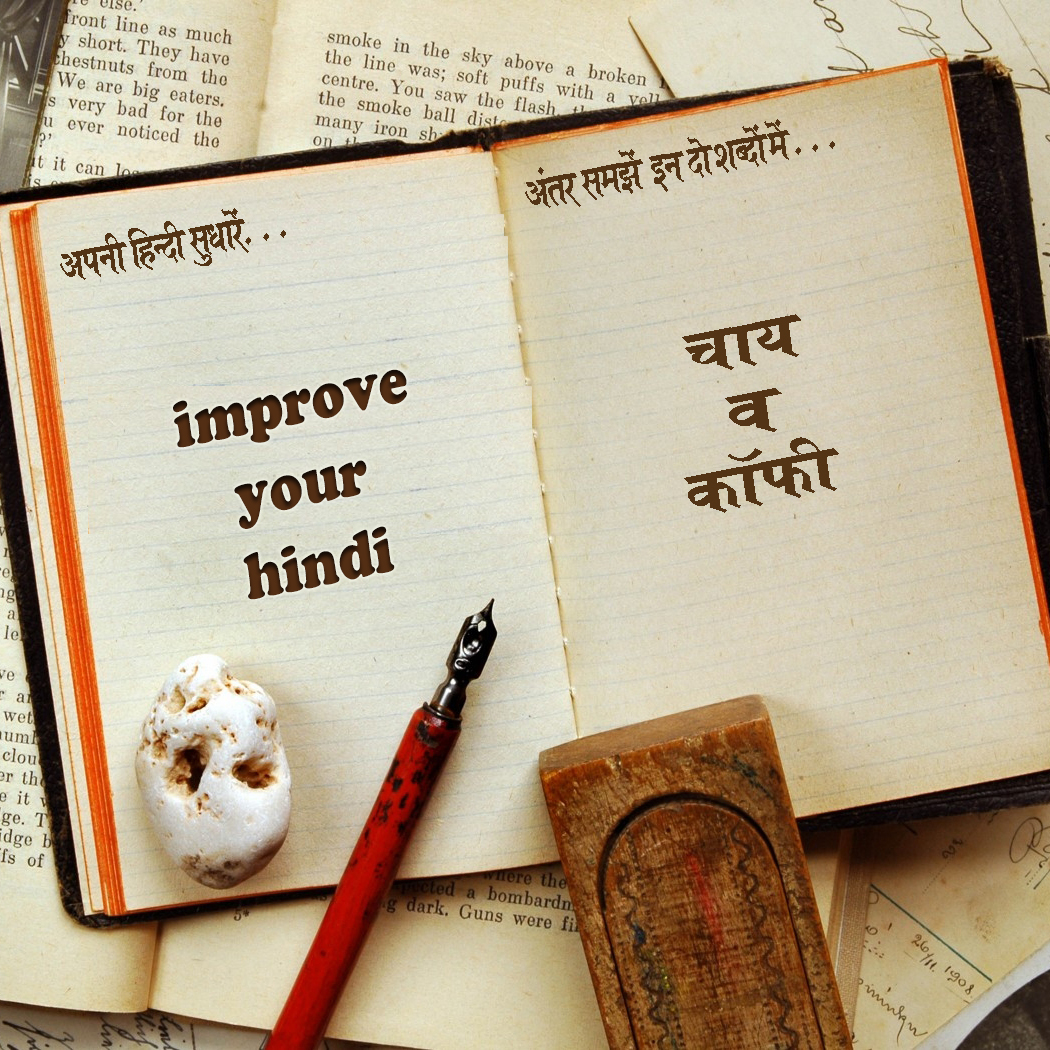 re else.'
front line as much
y short. They have
chestnuts from the
We are big eaters.
s very bad for the
u ever noticed the
?'
smoke in the sky above a broken
the line was; soft puffs with a
centre. You saw the flash,
the smoke ball
many iron
on
अपनी हिन्दी सुधारें. . .
improve
your
hindi
अंतर समझें इन दो शब्दों में . . .
चाय
व
कॉफी
where the
a
dark. Guns were
5*
26/11. 1908.